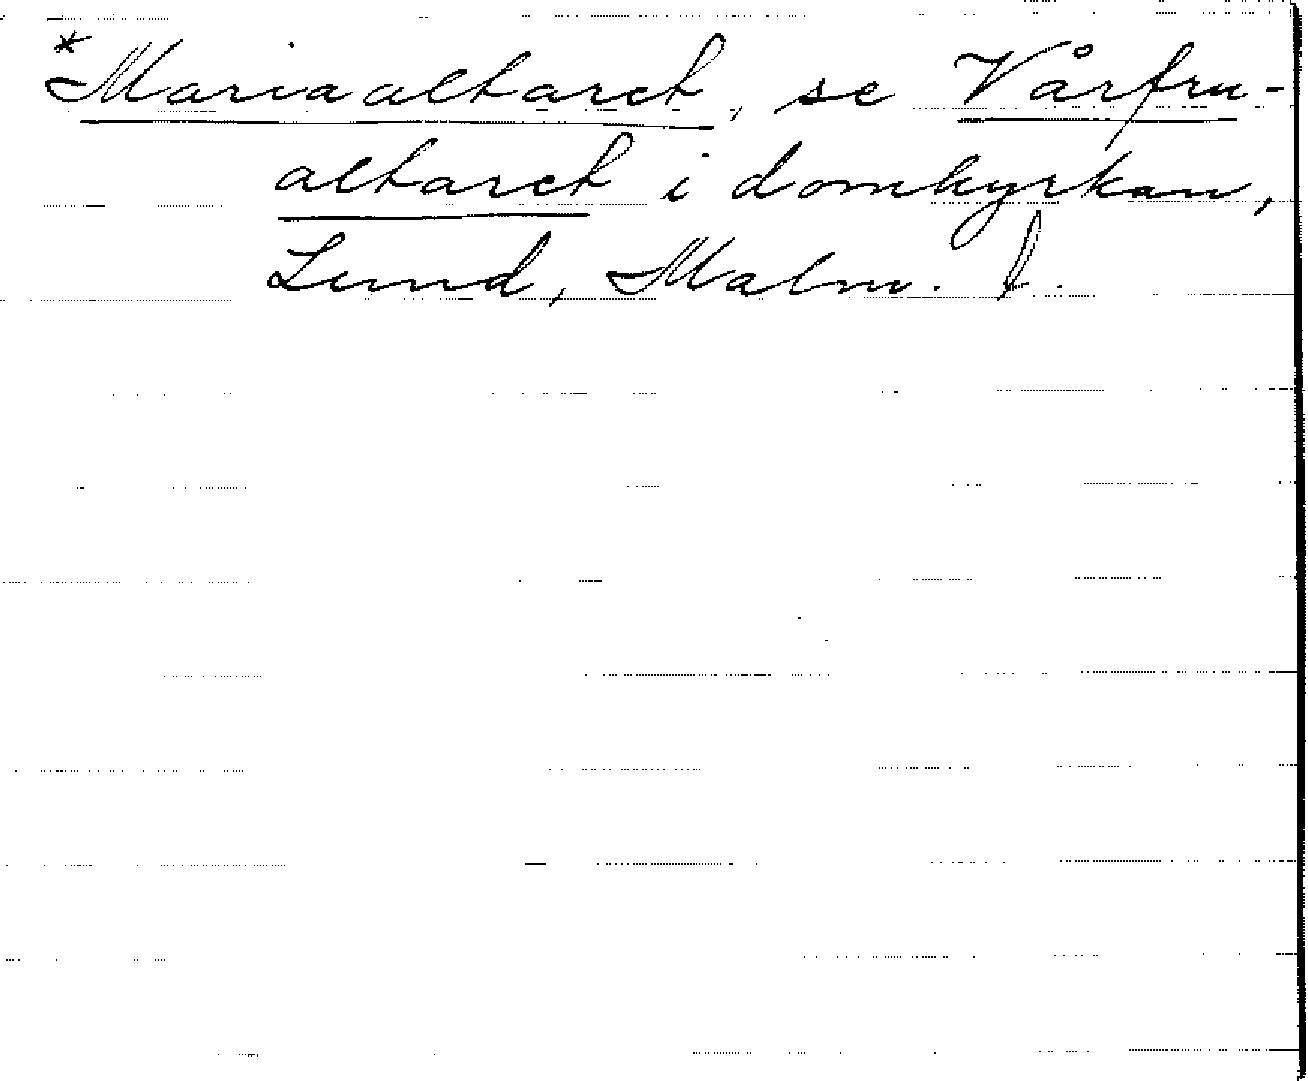 *Mariaaltaret, se Vårfru-
altaret i domkyrkan,
Lund, Malm. l.